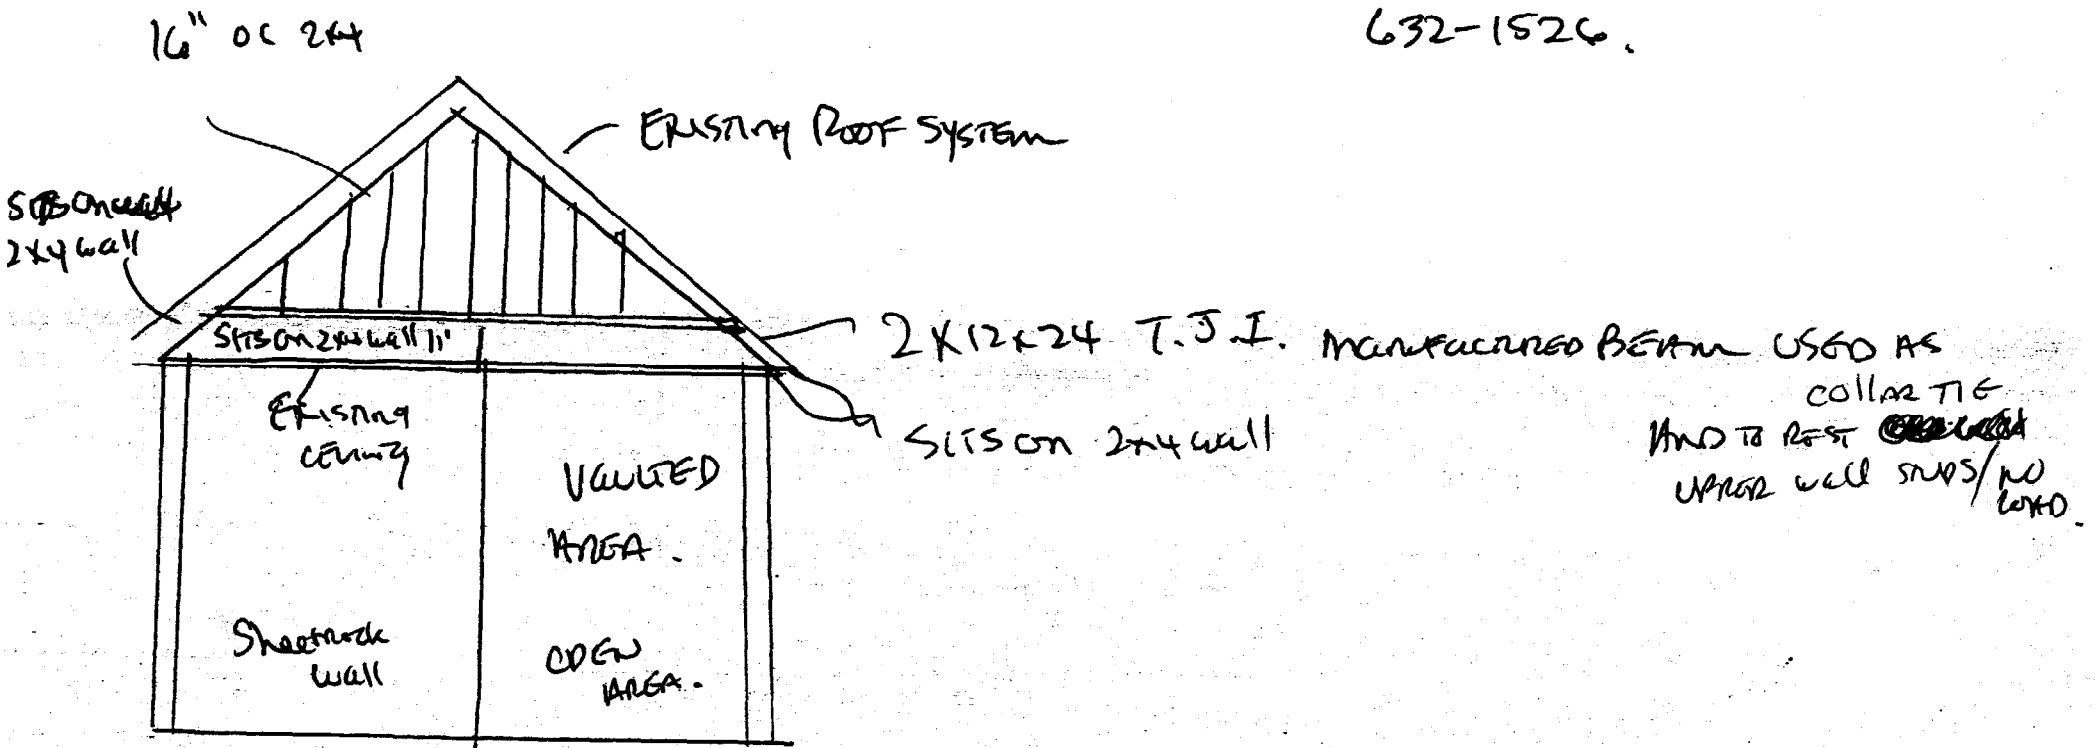 16" OC 2x4
632-1526.
EXISTING ROOF SYSTEM
2x4 wall
SITS ON 2x4 wall
2 X 12 x 24 T.J.I. MANUFACTURED BEAM USED AS
COLLAR TIE
AND TO REST
UPPER WALL STUDS/NO
LOAD.
SITS ON 2x4 wall
EXISTING
CEILING
VAULTED
AREA.
Sheetrock
wall
OPEN
AREA.